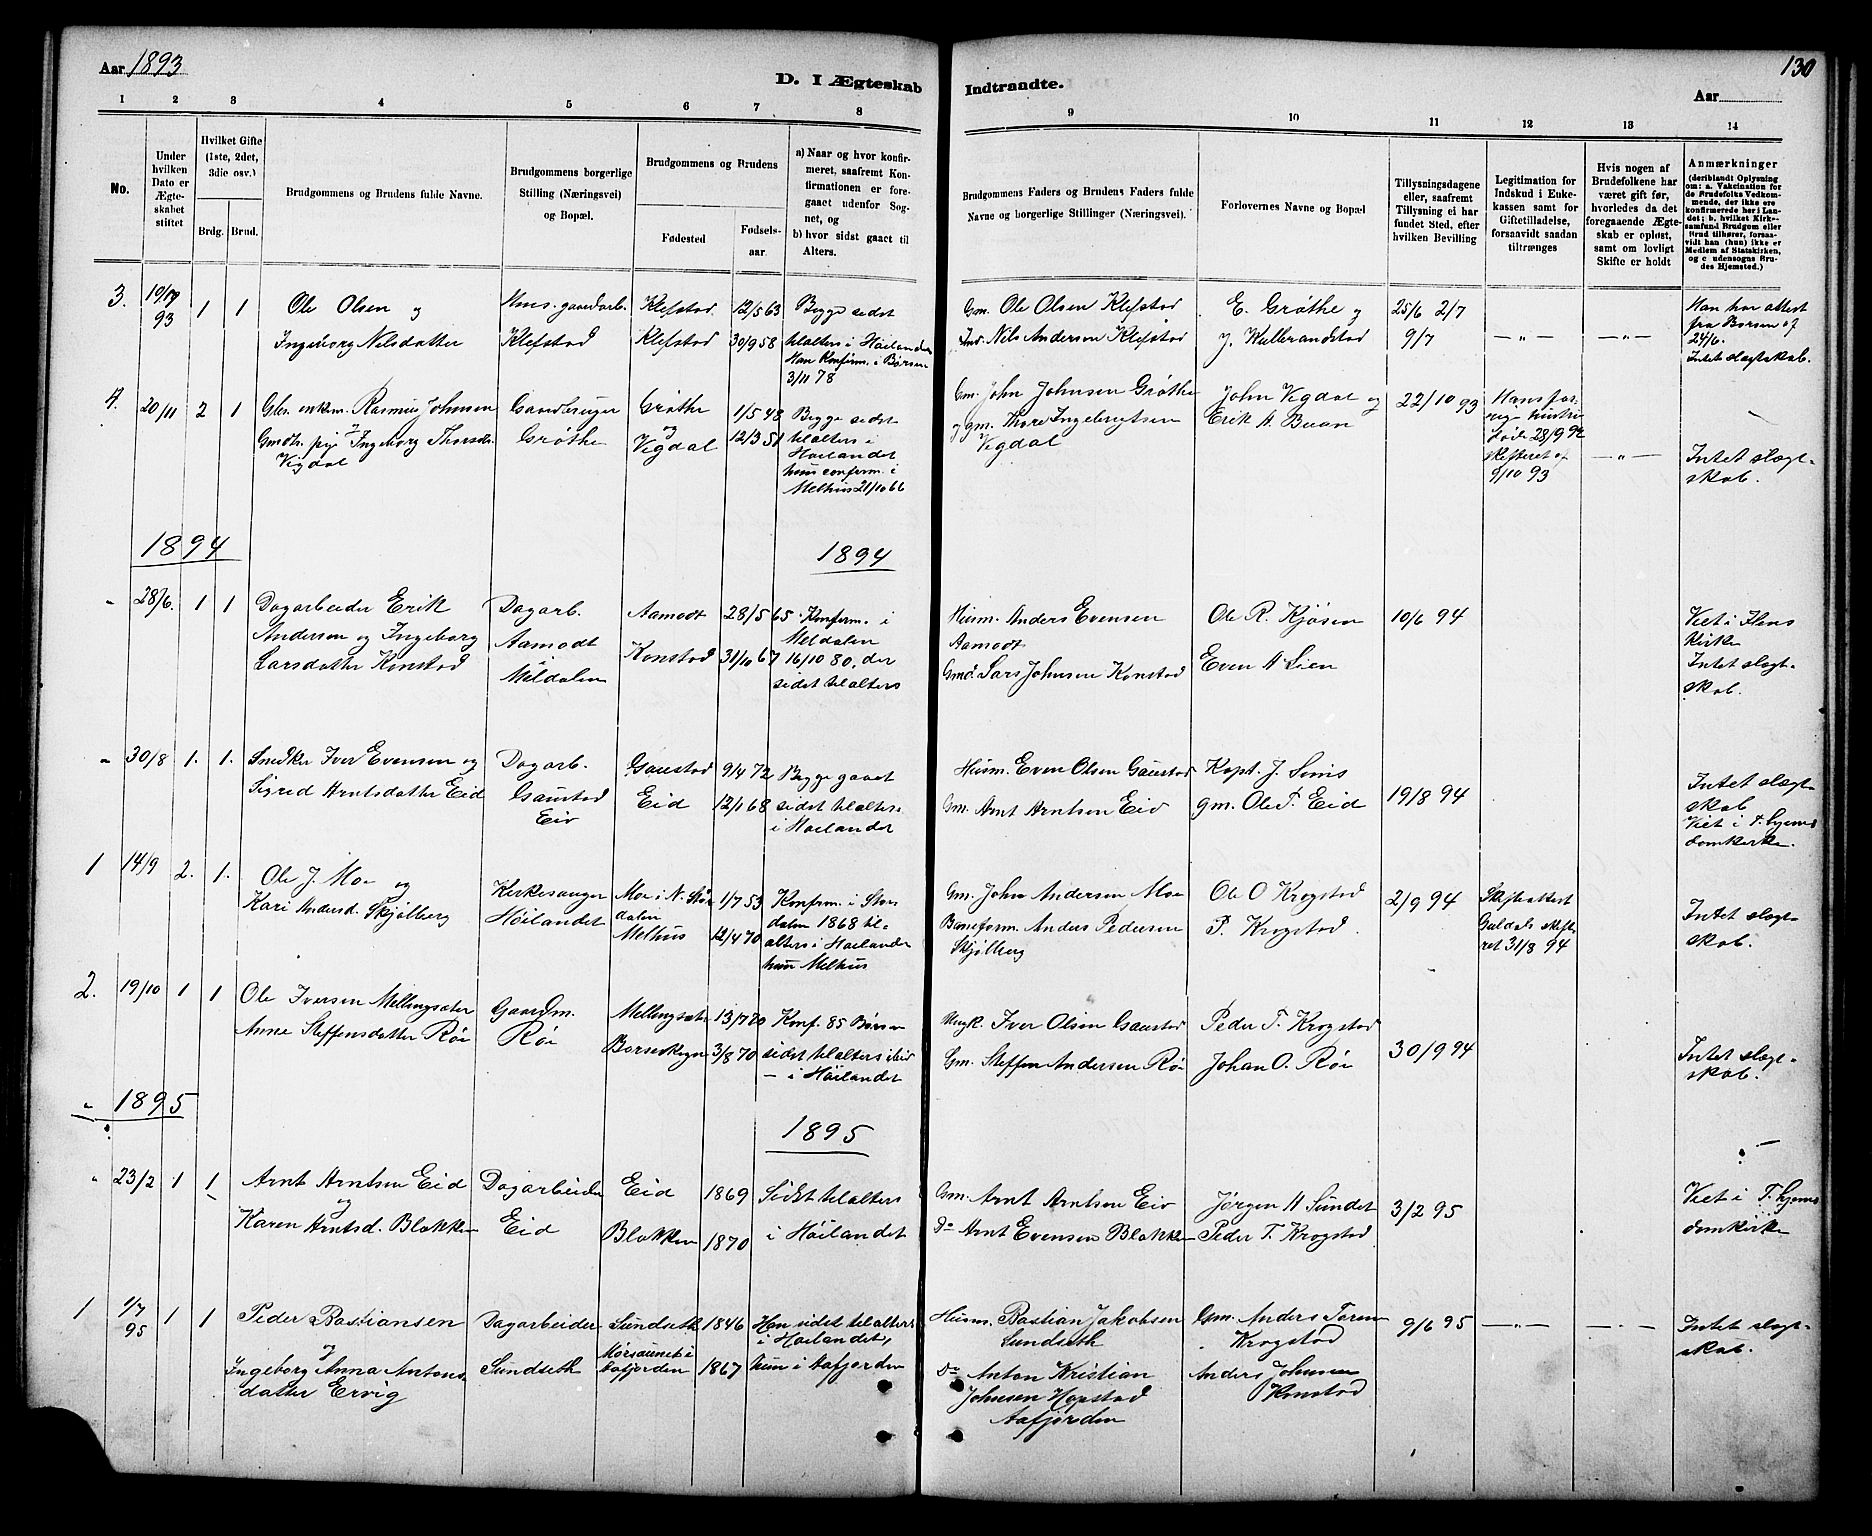 Aar 1893
D. I Ægteskab
Indtraadte.
130
Aar
1 2 3 4 5 6 7 8 9 10 11 12 13 14
No.
Under hvilken Dato er Ægteskabet stiftet
Hvilket Gifte (1ste, 2det, 3die osv.)
Brdg. Brud.
Brudgommens og Brudens fulde Navne.
Brudgommens borgerlige Stilling (Næringsvei) og Bopæl.
Brudgommens og Brudens
Fødested
Fødselsaar.
a) Naar og hvor konfirmeret, saafremt Konfirmationen er foregaaet udenfor Sognet, og
b) hvor sidst gaaet til Alters.
Brudgommens Faders og Brudens Faders fulde Navne og borgerlige Stillinger (Næringsvei).
Forlovernes Navne og Bopæl
Tillysningsdagene eller, saafremt Tillysning ei har fundet Sted, efter hvilken Bevilling
Legitimation for Indskud i Enkekassen samt for Giftetilladelse, forsaavidt saadan tiltrænges
Hvis nogen af Brudefolkene har været gift før, hvorledes da det foregaaende Ægteskab er opløst, samt om lovligt Skifte er holdt
Anmærkninger (deriblandt Oplysning om: a. Vakcination for de Brudefolks Vedkommende, der ikke ere konfirmerede her i Landet; b. hvilket Kirkesamfund Brudgom eller Brud tilhører, forsaavidt han (hun) ikke er Medlem af Statskirken, og c udensogns Brudes Hjemsted.)
3.
93
1 1
Ole Olsen og
Ingeborg Nilsdatter
gaardarb.
Klefstad
Klefstad 12/5 63
Klefstad 30/9 58
Begge sidst
tilalters i Høilandet
Han Konfirm. i Børsen
3/11 78
Gm. Ole Olsen Klefstad
Ind. Nils Andersen Klefstad
E. Grøthe og
J. Kulbrandstad
25/6 2/7
9/7
— " —
— " —
Han har attest
fra Børsen af
24/6.
Intet slægtskab.
4. 20/11 2 1
Gbr. enkem. Rasmus Johnsen
Gmdtr. pige Ingeborg Thorsdr.
Vigdal
Gaardbruger
Grøthe
Grøthe 1/5 48
og
Vigdal 12/3 51
Begge sidst
tilalters i
Høilandet
hun confirm. i
Melhus 21/10 66
Gm. John Johnsen Grøthe
og gm. Thore Ingebrigtsen
Vigdal
John Vigdal og
Erik A. Buan
22/10 93
Hans for-
rige hustru
døde 28/9 92
skifteret af
9/10 93
— " —
Intet slægt-
skab.
1894
1894
" 28/6. 1 1
Dagarbeider Erik
Andersen og Ingeborg
Larsdatter Konstad
Dagarb.
Aamodt
Meldalen
Aamodt 28/5 65
Konstad 31/10 67
Konfirm. i
Meldalen
16/10 80, der
sidst tilalters
Husm. Anders Evensen
Aamodt
Gmd. Lars Johnsen Konstad
Ole R. Kjøsen
Even A Lien
10/6 94
Viet i Ilens
Kirke
Intet slægt-
skab.
" 30/8 1. 1.
Snedker Iver Evensen og
Sigrid Arntsdatter Eid
Dagarb.
Gaustad
Eid
Gaustad 9/4 72
Eid 12/1 68
Begge gaaet
sidst tilalters
i Høilandet
Husm. Even Olsen Gaustad
Gm. Arnt Arntsen Eid
Kapt. J. Sims
gm. Ole T. Eid
19/8 94
Intet slægt-
skab
Viet i T.hjems
domkirke.
1 14/9 2. 1.
Ole J. Moe og
Kari Andersd. Skjølberg
Kirkesanger
Høilandet
Moe i N. Stør
dalen 1/7 53
Melhus 12/4 70
Konfirm. i Stør
dalen 1868 til-
alters i Høilandet
hun Melhus
Gm. John Andersen Moe
Baneform. Anders Pedersen
Skjølberg
Ole O Krogstad
P. Krogstad.
2/9 94
Skifteattest
Guldals skift-
ret 31/8 94
Intet slægt-
skab.
2. 19/10 1 1
Ole Iversen Mellingsæter
Anne Steffensdatter Røe
Gaardm.
Røe
Mellingsæter 13/7 70
Børseskogn 3/8 70
Konf. 85 Børsen
sidst tilalters
— i Høilandet
Iver Olsen Gaustad
Gm. Steffen Andersen Røe
Peder T. Krogstad
Johan O. Røe
30/9 94
Intet slægt-
skab.
1895
1895
" 23/2 1 1
Arnt Arntsen Eid
og
Karen Arntsd. Blokken
Dagarbeider
Eid
Eid 1869
Blokken 1870
Sidst tilalters
i Høilandet
Gm. Arnt Arntsen Eid
Do Arnt Evensen Blokken
Jørgen A Sundet
Peder T. Krogstad
3/2 95
Viet i T.hjems
domkirke
1 1/7
95
1 1
Peder Bastiansen
og
Ingeborg Anna Antons-
datter Ervig
Dagarbeider
Sundseth
Sundseth 1846
Mørsaunet i
Aafjorden 1867
Han sidst tilalters
i Høilandet,
hun i Aafjorden
Husm. Bastian Jakobsen
Sundseth
Do Anton Kristian
Johnsen Hopstad
Aafjorden
Gm. Anders Toren
Krogstad
Anders Johnsen
Konstad
9/6 95
— " —
— " —
Intet slægt-
skab.